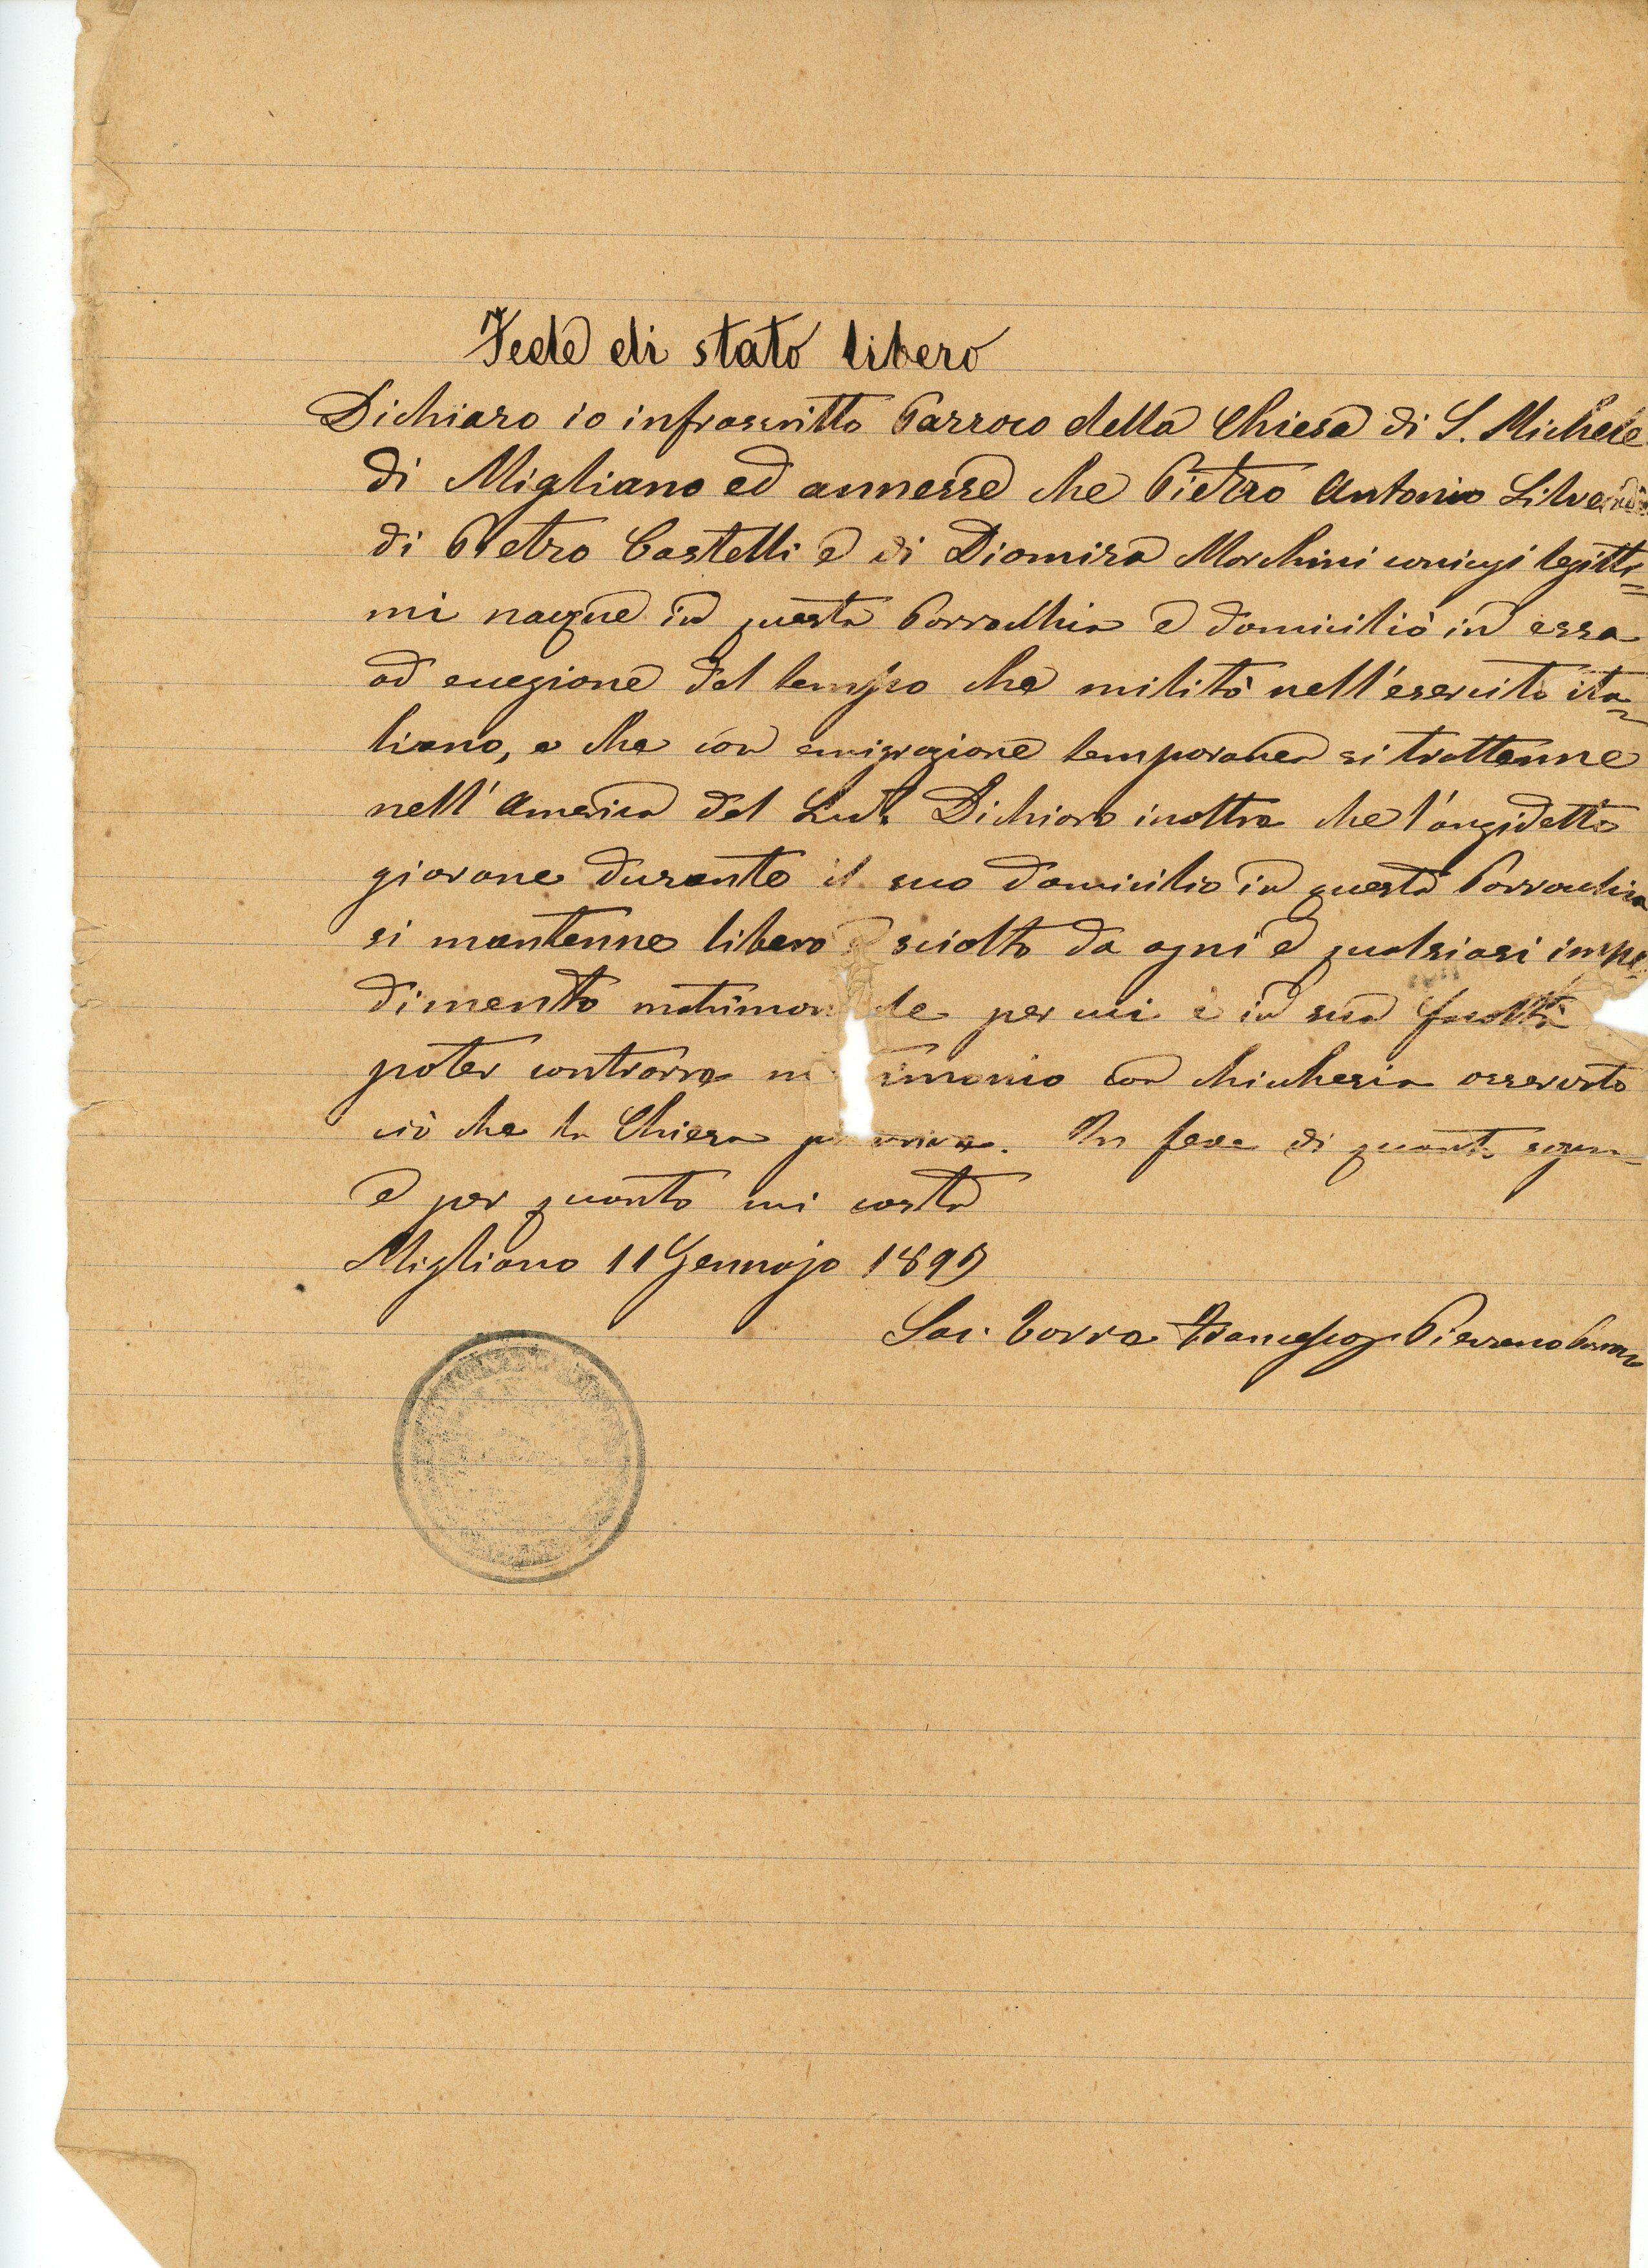 Fede di stato libero
Dichiaro io infrascritto Parroco della Chiesa di S. Michele
di Migliano ed annesse che Pietro Antonio
di Pietro Castelli e di Diomira Marchini coniugi legitti=
mi nacque in questa Parrochia e domiciliò in essa
ad eccezione del tempo che militò nell'esercito ita=
liano, e che con emigrazione temporanea si trattenne
nell'America del Sud. Dichiaro inoltre che l'anzidetto
giovane durante il suo domicilio in questa Parrochia
si mantenne libero e sciolto da ogni e qualsiasi impe
dimento per cui è in sua facoltà
poter contrarre con chichesia osservato
ciò che la Chiesa In fede di quanto sopra
e per quanto mi costa
Migliano 11 Gennajo
Sac. Torre Francesco